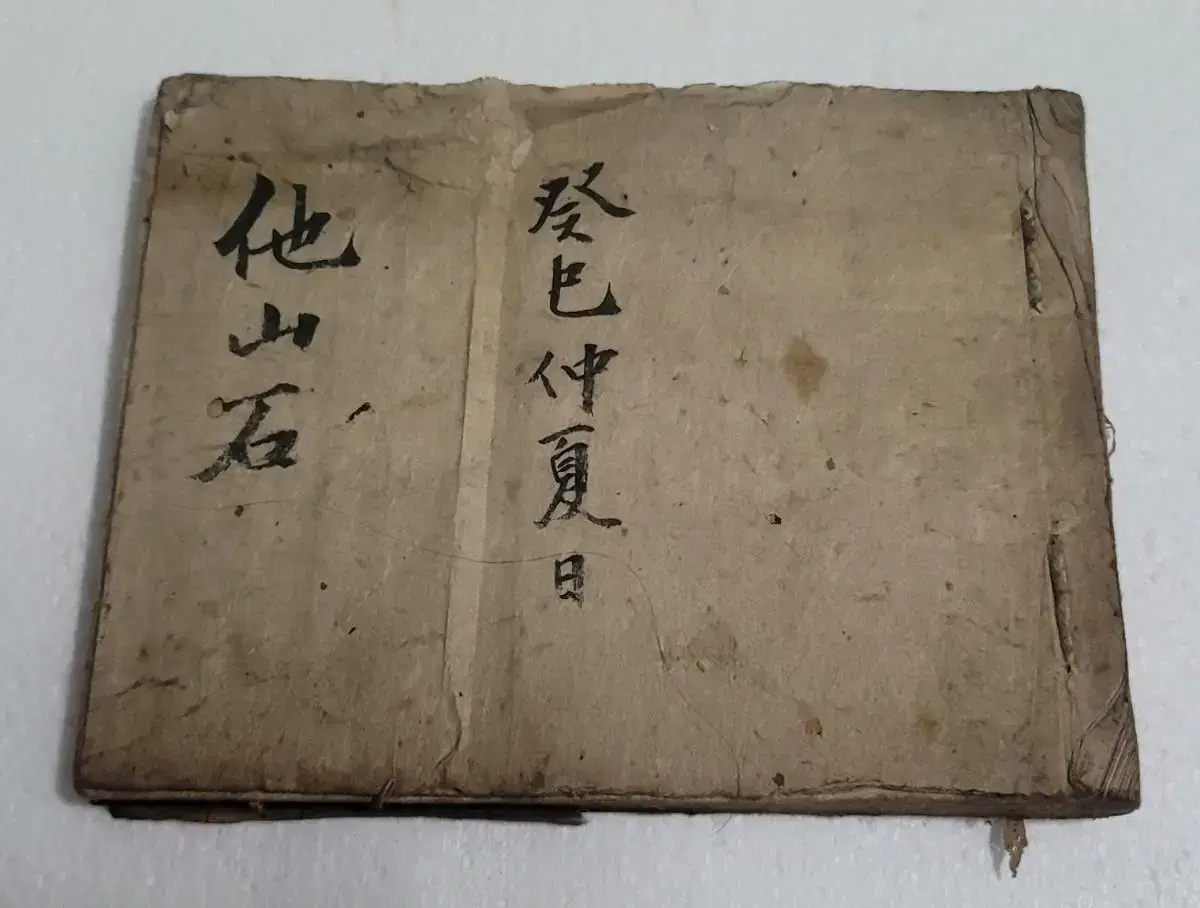 癸巳仲夏日
他山石